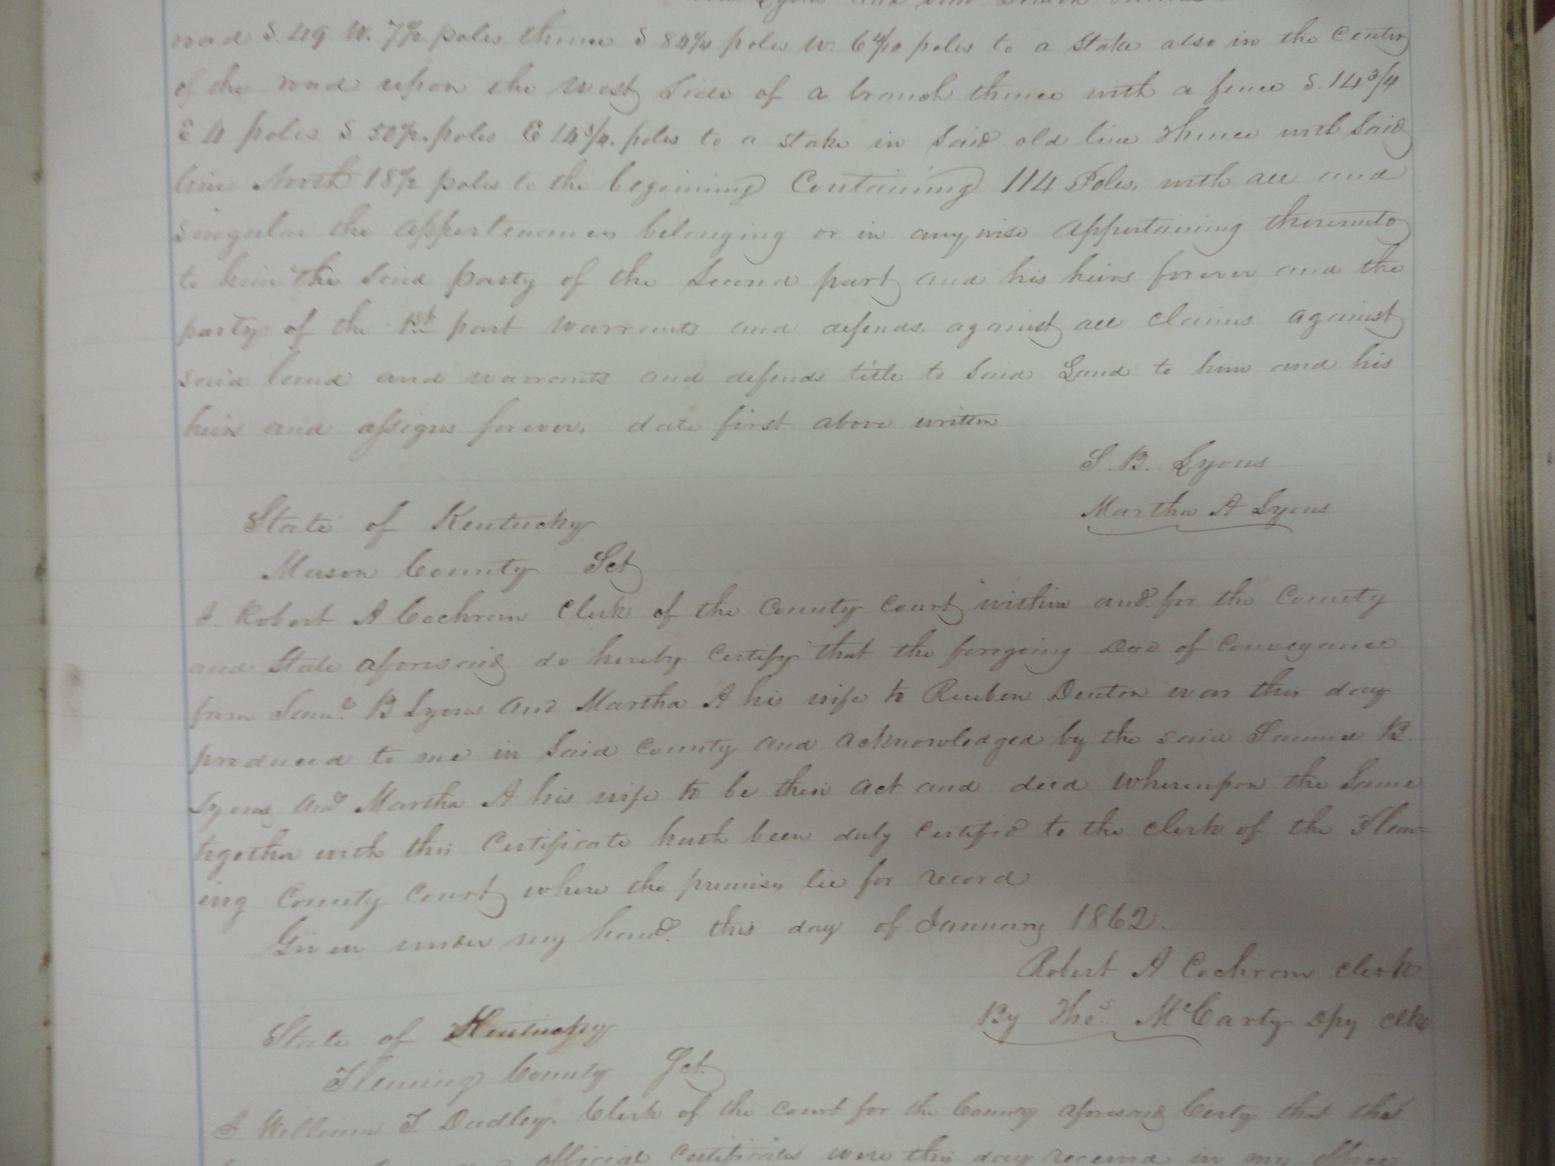 Lyons and said Denton
road S. 49 W. 7½ poles thence S 80¾ poles W. 6 4/10 poles to a stake also in the center
of the road upon the west side of a branch thence with a fence S. 14 3/4
E 4 poles S 50½ poles E 14¾ poles to a stake in said old line thence with said
line North 18½ poles to the begining Containing 114 Poles, with all and
singular the appertenances belonging or in any wise appertaining thereunto
to him the said party of the second part and his heirs forever and the
party of the 1st part warrants and defends against all claims against
said land and warrants and defends title to said Land to him and his
heirs and assigns forever, date first above written
S. B. Lyons
Martha A Lyons
State of Kentucky
Mason County Sct
I Robert A Cochran Clerk of the County Court within and for the County
and State aforesaid do hereby certify that the foregoing Deed of Conveyance
from Saml B Lyons and Martha A his wife to Reuben Denton was this day
produced to me in said County and acknowledged by the said Samuel B.
Lyons and Martha A his wife to be their act and deed whereupon the same
together with this Certificate hath been duly certified to the clerk of the Flem-
ing County Court where the premises lie for record
Given under my hand this day of January 1862.
Robert A Cochran Clerk
By Thos McCarty Dpy clk
State of Kentucky
Fleming County Sct.
I William T. Dudley. Clerk of the court for the County aforesaid Certy that the
official Certificates were this day received in my office